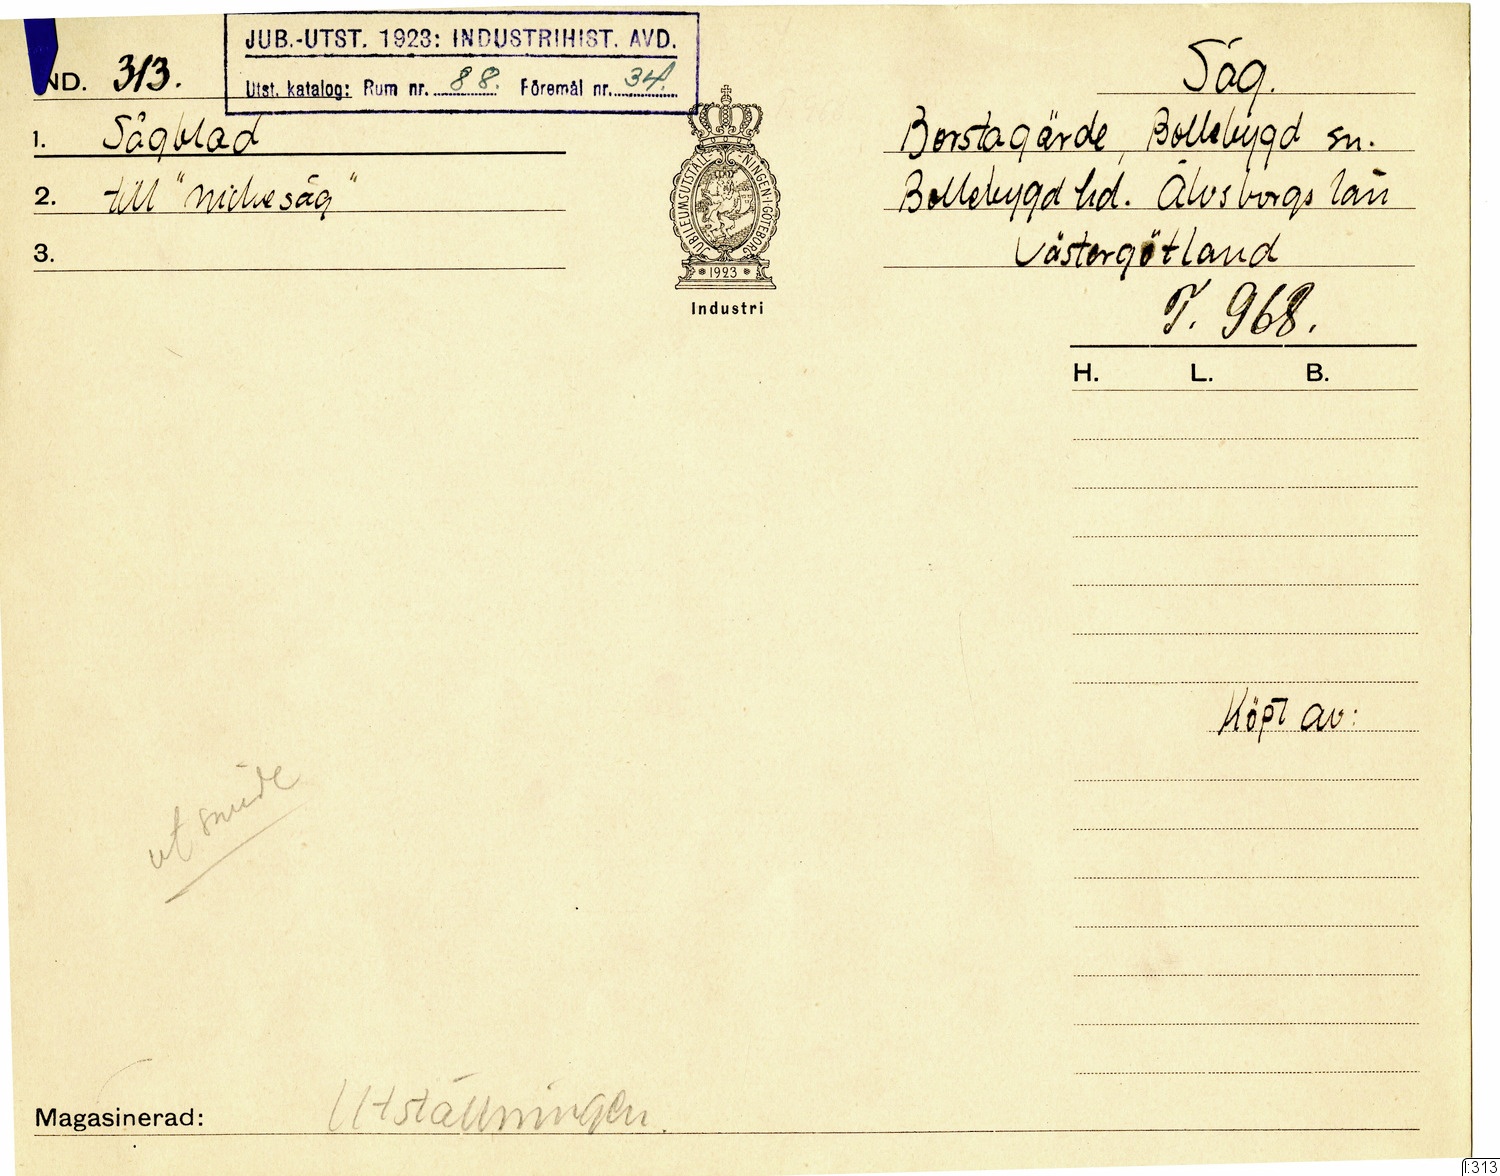 JUB.-UTST. 1923: INDUSTRIHIST. AVD.
Utst. katalog: Rum nr. 88. Föremål nr. 34.
ND. 313.
Såg.
1. Sågblad
Borstagärde, Bollebygd sn.
2. till "nickesåg"
Bollebygd hd. Älvsborgs län
3.
Västergötland
JUBILEUMSUTSTÄLLNINGEN I GÖTEBORG
* 1923 *
Industri
T. 968.
H. L. B.
Köpt av:
ut smide
Magasinerad: Utställningen.
I:313